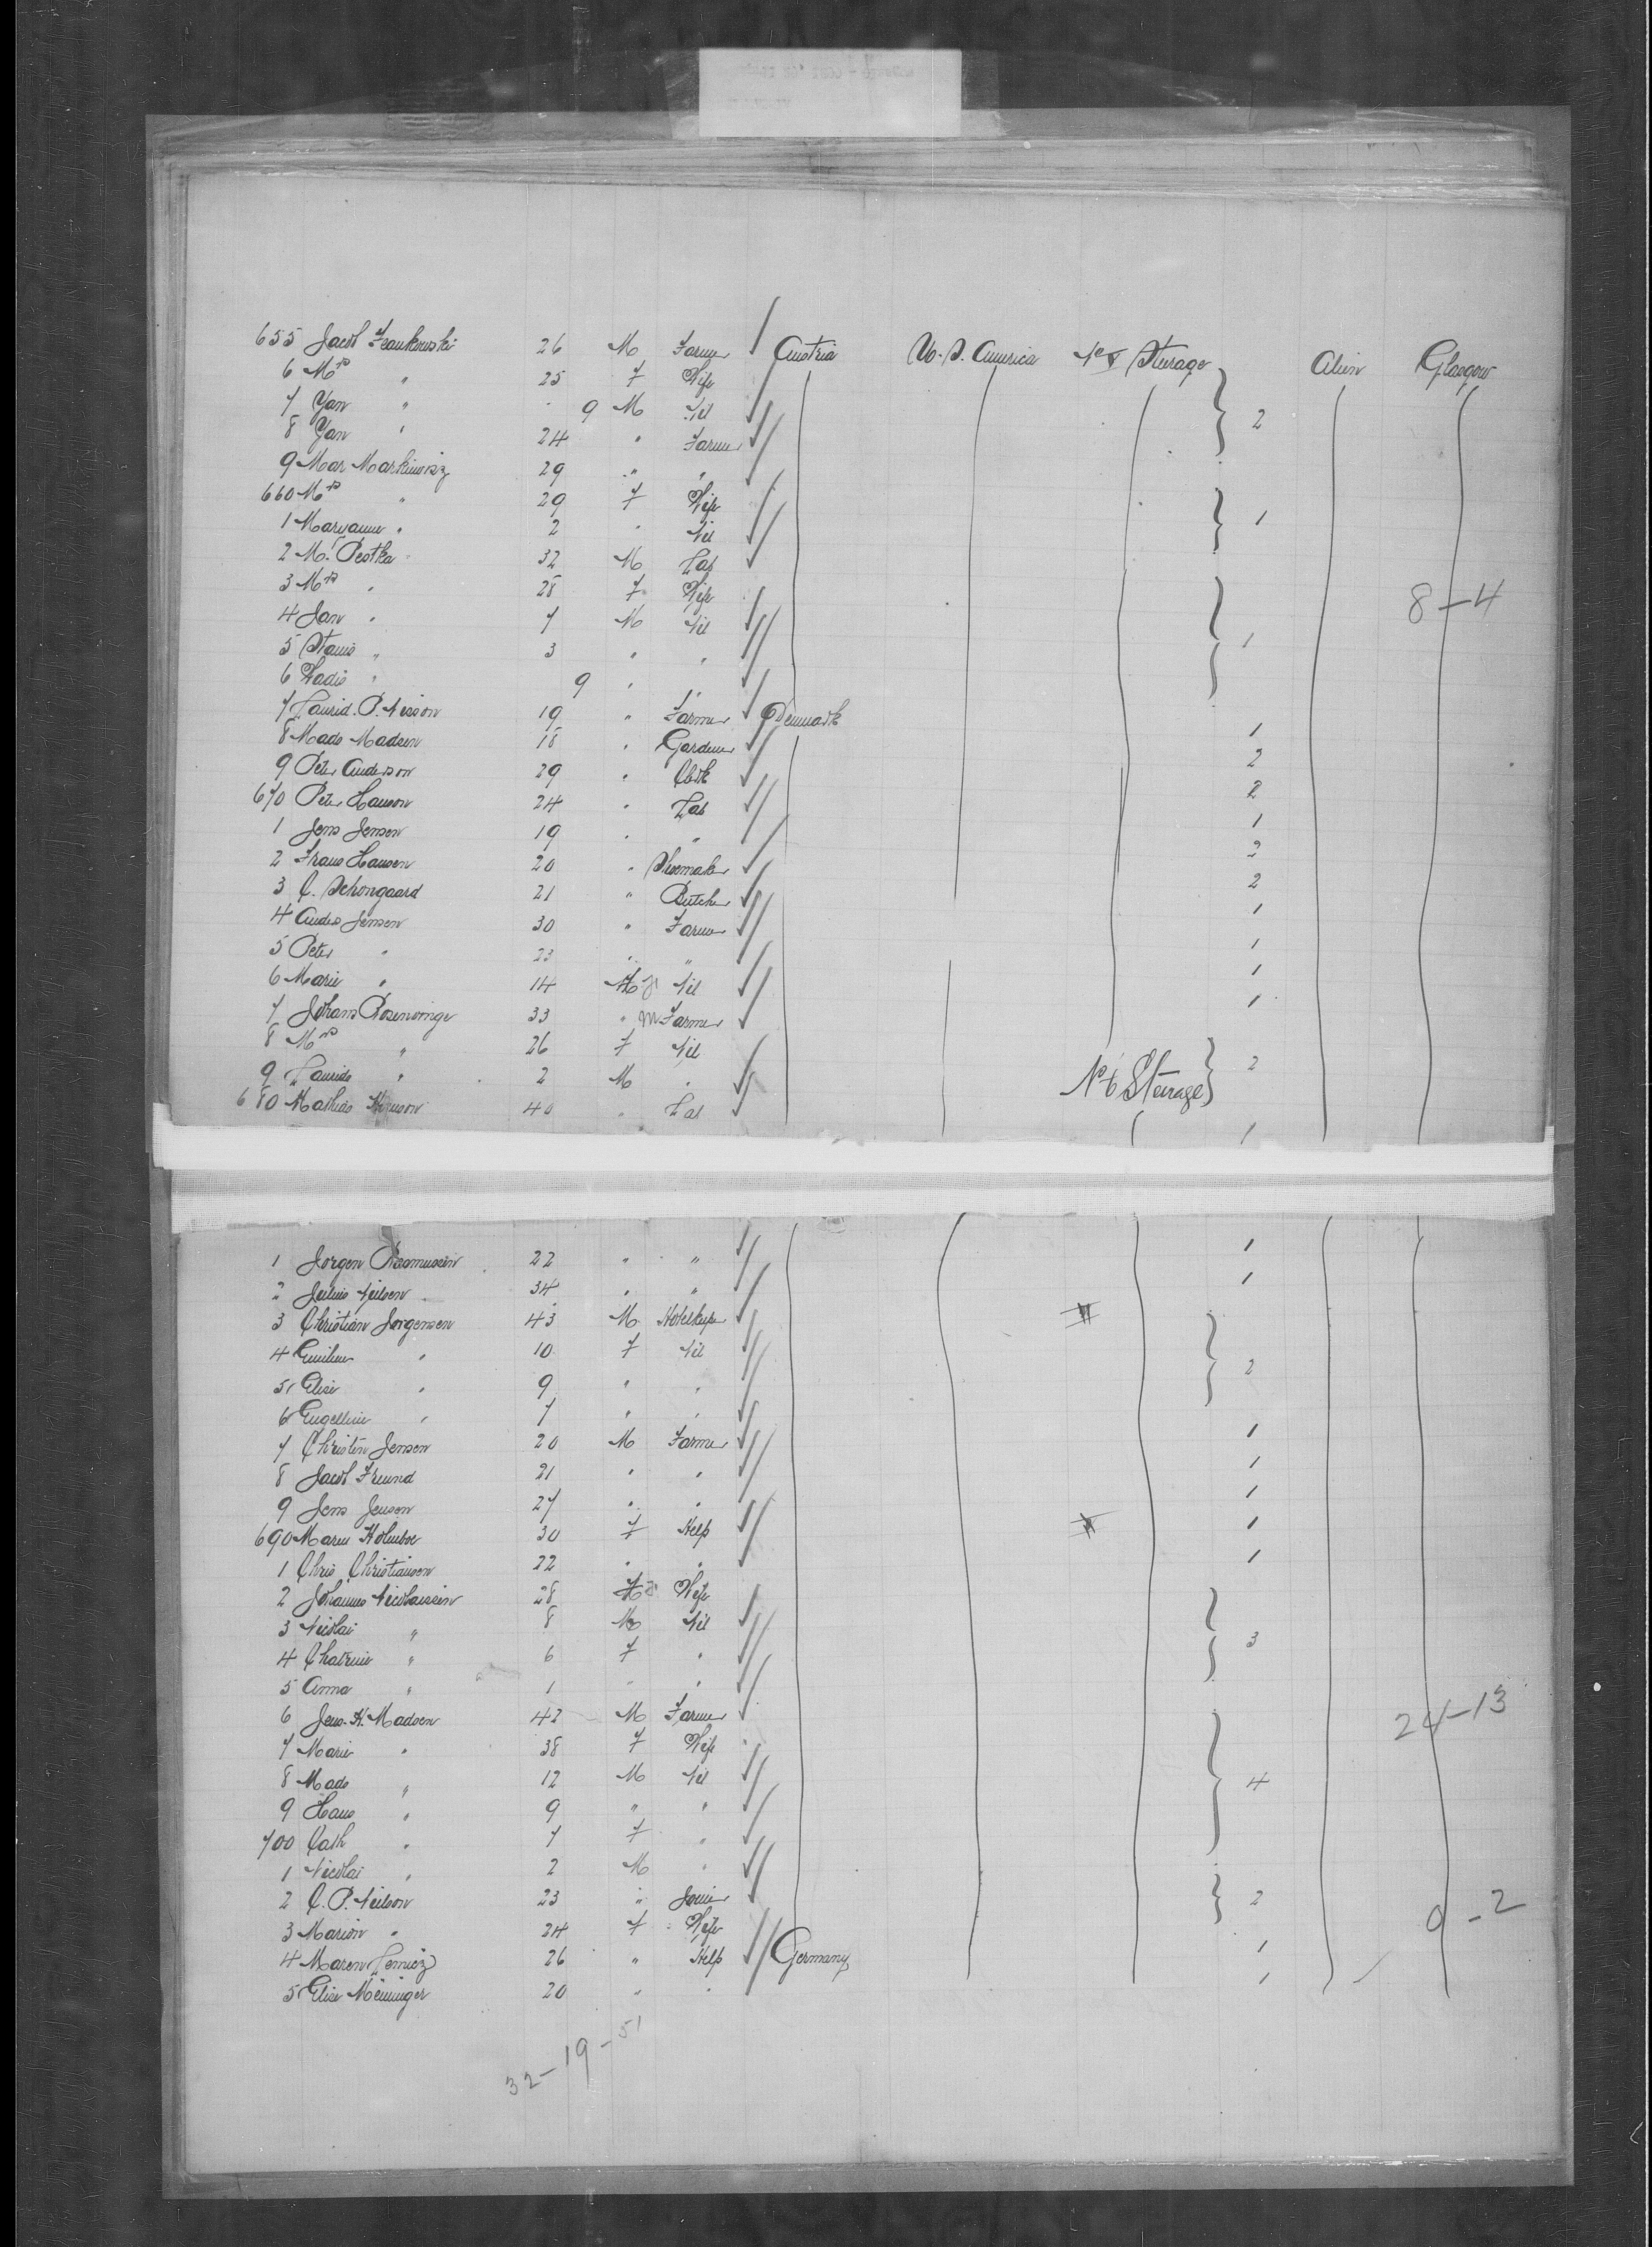 655 Jacob Frankowski 26 M Farmer Austria U. S. America No 5 Steerage Alien Glasgow
6 Mrs " 25 F Wife
7 Yan " 9 M Nil 2
8 Yan " 24 " Farmer
9 Mar Markiewicz 29 " "
660 Mrs " 29 F Wife
1 Maryanne " 2 " Nil 1
2 M. Pestka 32 M Lab
3 Mrs " 28 F Wife 8-4
4 Jan " 7 M Nil
5 Stanis " 3 " " 1
6 Wadis " 9 " "
7 Laurid. P. Nisson 19 " Farmer Denmark
8 Mads Madsen 18 " Gardener 1
9 Peter Anderson 29 " Clerk 2
670 Peter Hanson 24 " Lab 2
1 Jens Jensen 19 " " 1
2 Frans Hansen 20 " Shoemaker 2
3 C. Schongaard 21 " Butcher 2
4 Andes Jensen 30 " Farmer 1
5 Peter " 23 " " 1
6 Marie " 14 F Nil 1
7 Johans Rosenvinge 33 " M Farmer 1
8 Mrs " 26 F Nil
9 Laurids " 2 M " No 6 Steerage 2
680 Mathias 40 " Lab 1
1 Jorgen Rasmussen 22 " " 1
2 Julius Neilsen 34 " " 1
3 Christian Jorgensen 43 M Hotelkeep
4 Emilien " 10 F Nil
5 Elise " 9 " " 2
6 Engelline " 7 " "
7 Christen Jensen 20 M Farmer 1
8 Jacob Freund 21 " " 1
9 Jens Jensen 27 " " 1
690 Maren Holmboe 30 F Help 1
1 Chris Christiansen 22 " " 1
2 Johannes Nicolaissen 28 F Wife
3 Nicolai " 8 M Nil
4 Chatrine " 6 F " 3
5 Anna " 1 " "
6 Jens. K. Madsen 42 M Farmer 24-13
7 Marie " 38 F Wife
8 Mads " 12 M Nil 4
9 Hans " 9 " "
700 Cath " 7 F "
1 Nicolai " 2 M "
2 C. P. Neilson 23 " Joiner 2
3 Marion " 24 F Wife 0-2
4 Maren 26 " Help Germany 1
5 Elise Meininger 20 " " 1
32-19-51